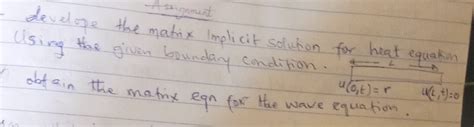 Assignment
develope the matrix Implicit solution for heat equation
Using the given boundary condition.
L
u(0,t)=r u(L,t)=0
obtain the matrix eqn for the wave equation.